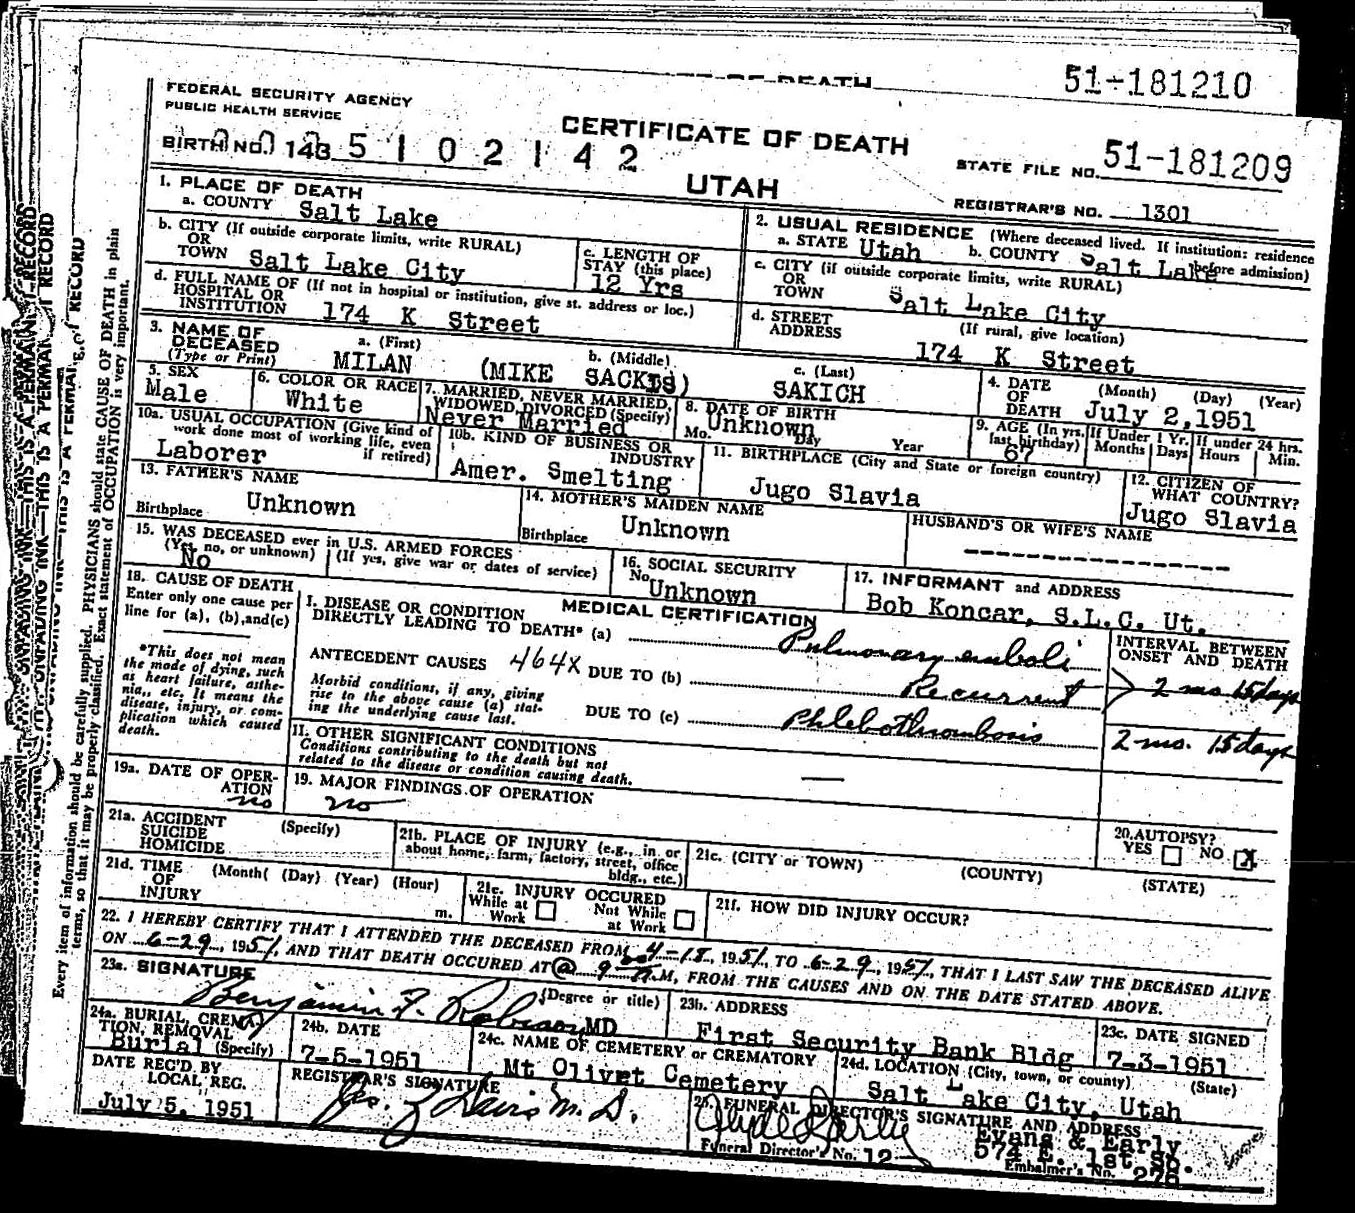 51-181210
FEDERAL SECURITY AGENCY
PUBLIC HEALTH SERVICE
CERTIFICATE OF DEATH
BIRTH NO. 143 5 1 0 2 1 4 2
STATE FILE NO. 51-181209
UTAH
REGISTRAR'S NO. 1301
1. PLACE OF DEATH
a. COUNTY Salt Lake
2. USUAL RESIDENCE (Where deceased lived. If institution: residence before admission)
a. STATE Utah b. COUNTY Salt Lake
b. CITY (If outside corporate limits, write RURAL)
OR
TOWN Salt Lake City
c. LENGTH OF
STAY (this place)
12 Yrs
c. CITY (if outside corporate limits, write RURAL)
OR
TOWN Salt Lake City
d. FULL NAME OF (If not in hospital or institution, give st. address or loc.)
HOSPITAL OR
INSTITUTION 174 K Street
d. STREET
ADDRESS
(If rural, give location)
174 K Street
3. NAME OF
DECEASED
(Type or Print)
a. (First)
MILAN
b. (Middle)
(MIKE SACKIS)
c. (Last)
SAKICH
4. DATE
OF
DEATH
(Month) (Day) (Year)
July 2,1951
5. SEX
Male
6. COLOR OR RACE
White
7. MARRIED, NEVER MARRIED,
WIDOWED, DIVORCED (Specify)
Never Married
8. DATE OF BIRTH
Unknown
Mo. Day Year
9. AGE (In yrs.
last birthday)
67
If Under 1 Yr.
Months Days
If under 24 hrs.
Hours Min.
10a. USUAL OCCUPATION (Give kind of
work done most of working life, even
if retired)
Laborer
10b. KIND OF BUSINESS OR
INDUSTRY
Amer. Smelting
11. BIRTHPLACE (City and State or foreign country)
Jugo Slavia
12. CITIZEN OF
WHAT COUNTRY?
Jugo Slavia
13. FATHER'S NAME
Unknown
Birthplace
14. MOTHER'S MAIDEN NAME
Unknown
Birthplace
HUSBAND'S OR WIFE'S NAME
15. WAS DECEASED ever in U.S. ARMED FORCES
(Yes, no, or unknown) (If yes, give war or dates of service)
No
16. SOCIAL SECURITY
No. Unknown
17. INFORMANT and ADDRESS
Bob Koncar, S.L.C. Ut.
18. CAUSE OF DEATH
Enter only one cause per
line for (a), (b), and (c)
*This does not mean
the mode of dying, such
as heart failure, asthe-
nia, etc. It means the
disease, injury, or com-
plication which caused
death.
MEDICAL CERTIFICATION
I. DISEASE OR CONDITION
DIRECTLY LEADING TO DEATH* (a) Pulmonary emboli
INTERVAL BETWEEN
ONSET AND DEATH
ANTECEDENT CAUSES 464X DUE TO (b) Recurrent
2 mo 15 days
Morbid conditions, if any, giving
rise to the above cause (a) stat-
ing the underlying cause last.
DUE TO (c) Phlebothrombosis
2 mo. 15 days
II. OTHER SIGNIFICANT CONDITIONS
Conditions contributing to the death but not
related to the disease or condition causing death.
19a. DATE OF OPER-
ATION
no
19. MAJOR FINDINGS OF OPERATION
no
20. AUTOPSY?
YES NO X
21a. ACCIDENT
SUICIDE
HOMICIDE
(Specify)
21b. PLACE OF INJURY (e.g., in or
about home, farm, factory, street, office
bldg., etc.)
21c. (CITY or TOWN) (COUNTY) (STATE)
21d. TIME
OF
INJURY
(Month( (Day) (Year) (Hour)
m.
21e. INJURY OCCURED
While at
Work
Not While
at Work
21f. HOW DID INJURY OCCUR?
22. I HEREBY CERTIFY THAT I ATTENDED THE DECEASED FROM 4-18, 1951, TO 6-29, 1951, THAT I LAST SAW THE DECEASED ALIVE
ON 6-29, 1951, AND THAT DEATH OCCURED AT @ 9 M, FROM THE CAUSES AND ON THE DATE STATED ABOVE.
23a. SIGNATURE
Benjamin F. Robison, MD
(Degree or title)
23b. ADDRESS
First Security Bank Bldg
23c. DATE SIGNED
7-3-1951
24a. BURIAL, CREMA-
TION, REMOVAL
(Specify)
Burial
24b. DATE
7-5-1951
24c. NAME OF CEMETERY or CREMATORY
Mt Olivet Cemetery
24d. LOCATION (City, town, or county) (State)
Salt Lake City, Utah
DATE REC'D BY
LOCAL REG.
July 5, 1951
REGISTRAR'S SIGNATURE
M. D.
25. FUNERAL DIRECTOR'S SIGNATURE AND ADDRESS
Evans & Early
574 E. 1st So.
Funeral Director's No. 12
Embalmer's No. 276
Every item of information should be carefully supplied. PHYSICIANS should state CAUSE OF DEATH in plain
terms, so that it may be properly classified. Exact statement of OCCUPATION is very important.